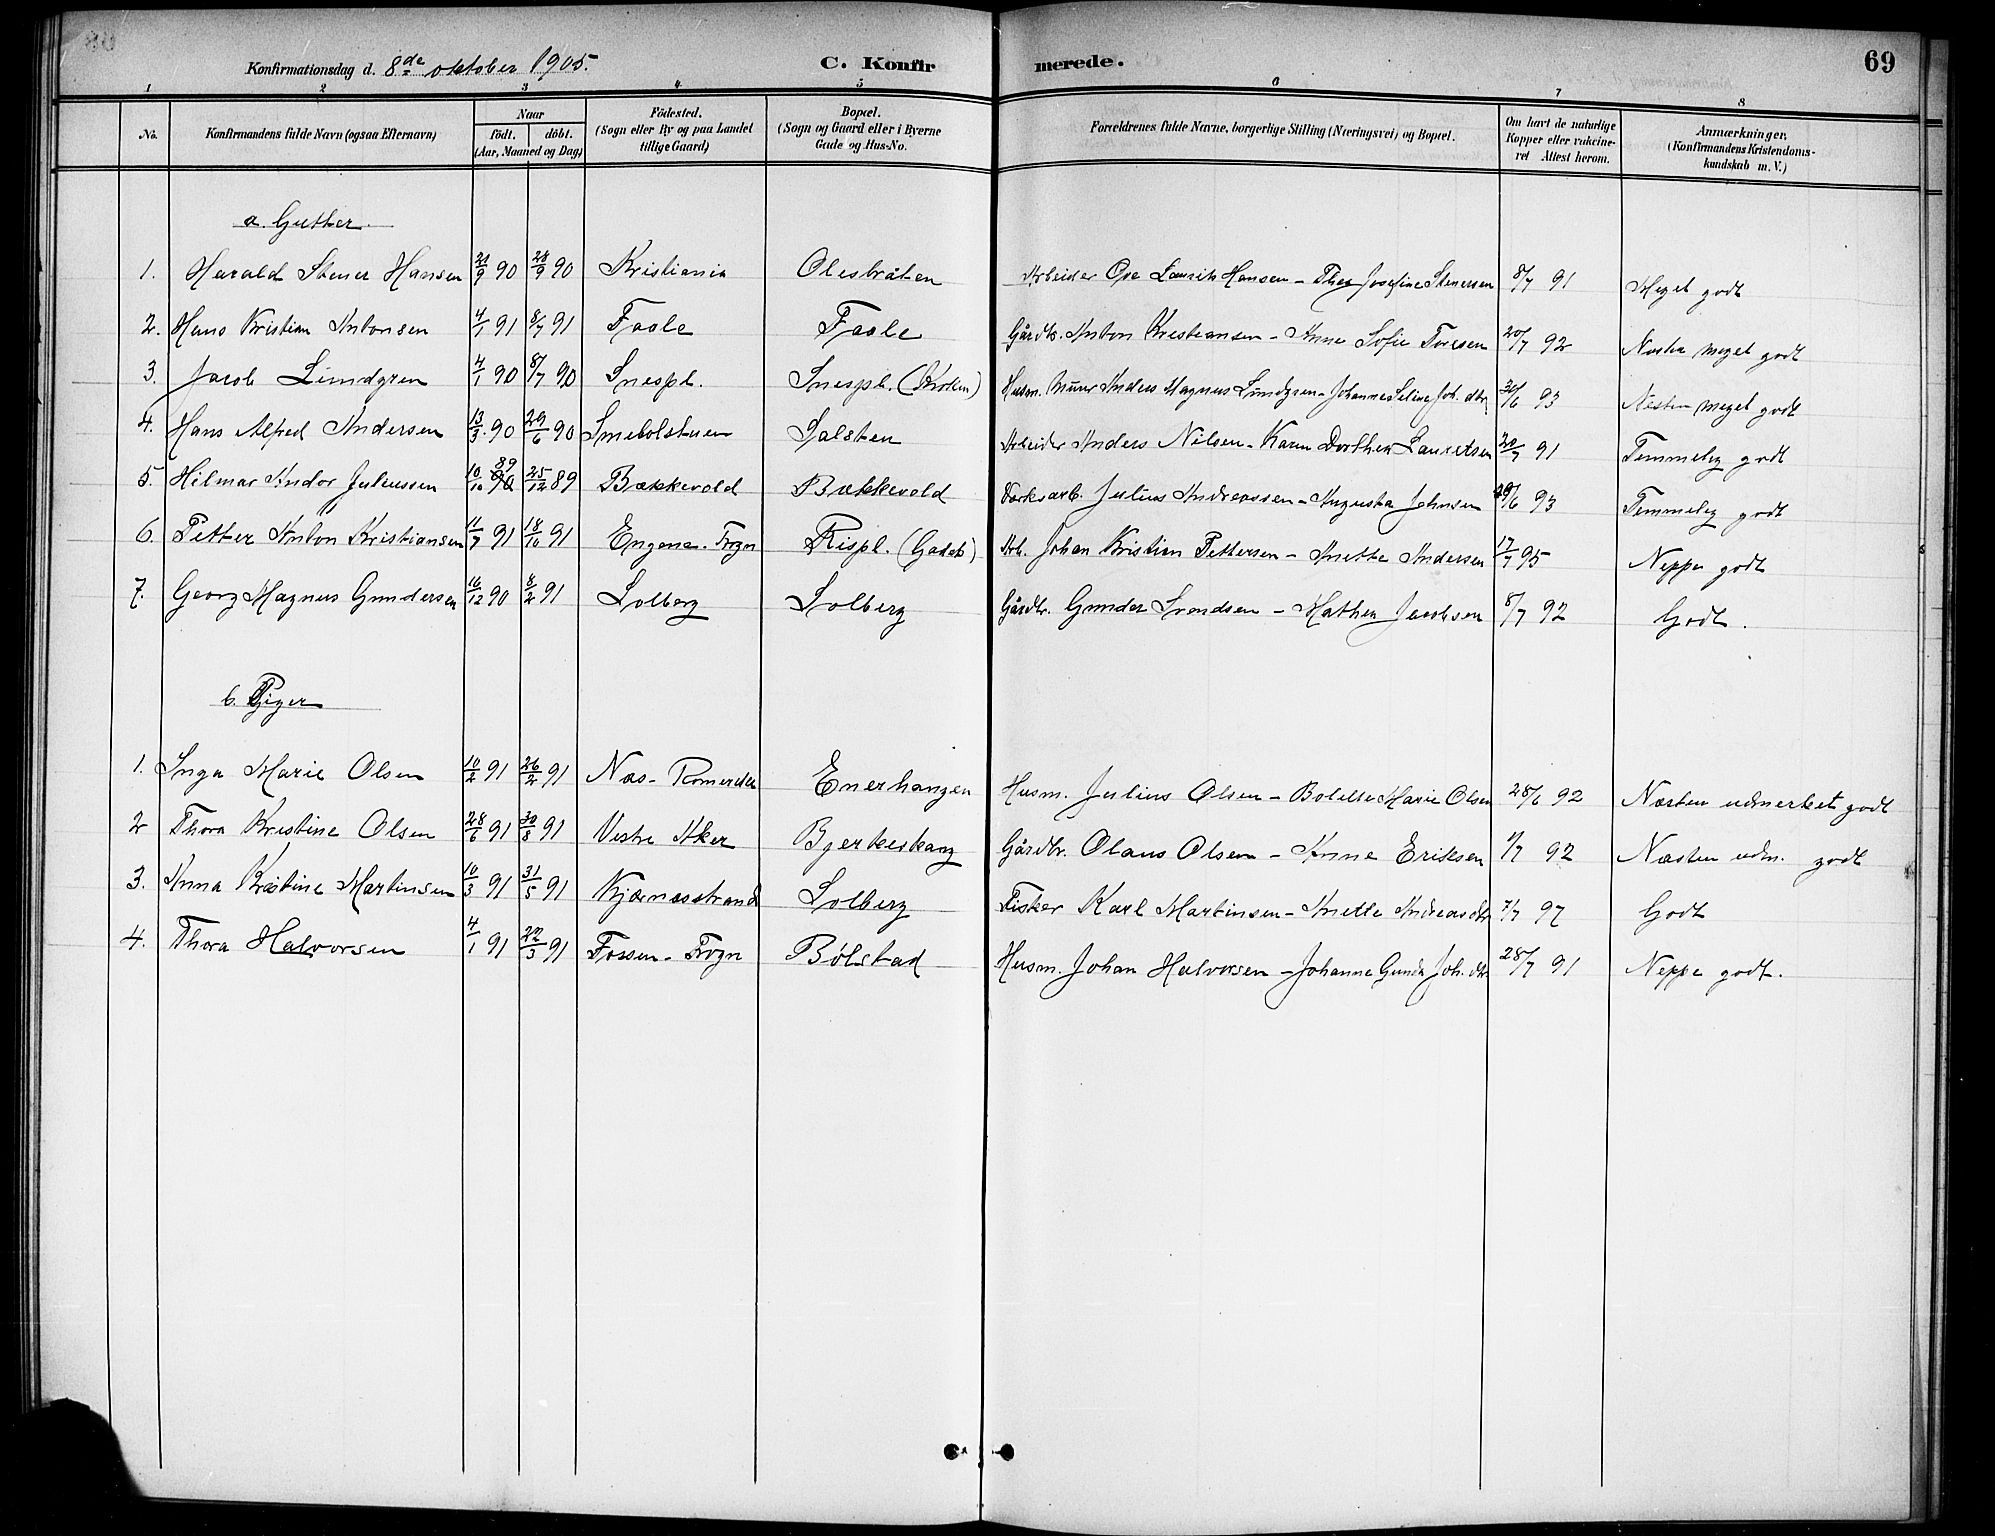 Konfirmationsdag d. 8de oktober 1905. C. Konfirmerede. 69
1 2 3 4 5 6 7 8
No. Konfirmandens fulde Navn (ogsaa Efternavn) Naar født. døbt. (Aar, Maaned og Dag) Födested. (Sogn eller By og paa Landet tillige Gaard) Bopæl. (Sogn og Gaard eller i Byerne Gade og Hus-No. Forældrenes fulde Navne, borgerlige Stilling (Næringsvei) og Bopæl. Om havt de naturlige Kopper eller vakcineret Attest herom. Anmærkninger. (Konfirmandens Kristendomskundskab m. V.)
a. Gutter.
1. Harald Stener Hansen 21/9 90 28/9 90 Kristiania Olesbråten Arbeider Ove Laurits Hansen - Thea Josefine Stenersen 8/7 91 Meget godt
2. Hans Kristian Antonsen 4/1 91 8/7 91 Faale Faale Gårdb. Anton Kristiansen - Anne Sofie Toresen 20/7 92 Nesten meget godt
3. Jacob Lundgren 4/1 90 8/7 90 Snespl. Snespl. Husm. Murer Anders Magnus Lundgren - Johanne Seline Joh. dtr 30/6 93 Nesten meget godt
4. Hans Alfred Andersen 13/3 90 29/6 90 Smebolstuen Salsten Arbeider Anders Nilsen - Karen Dorthea Lauritsen 20/7 91 Temmelig godt
5. Hilmar Andor Juliussen 10/10 89 25/12 89 Bækkevold Bækkevold Værksarb. Julius Andreassen - Augusta Johnsen 29/6 93 Temmelig godt
6. Petter Anton Kristiansen 11/7 91 18/10 91 Engene. Frogn Rispl. Arb. Johan Kristian Pettersen - Anette Andersen 17/7 95 Neppe godt
7. Georg Magnus Gundersen 16/12 90 8/2 91 Solberg Solberg Gårdbr. Gunder Svendsen - Mathea Jacobsen 8/7 92 Godt.
b. Piger
1. Inga Marie Olsen 10/2 91 26/2 91 Næs - Romerike Enerhaugen Husm. Julius Olsen - Bolette Marie Olsen 28/6 92 Næsten udmerket godt
2 Thora Kristine Olsen 28/6 91 30/8 91 Vestre Aker Bjerkeskaug Gårdbr. Olaus Olsen - Anne Eriksen 1/7 92 Næsten udm. godt
3. Anna Kristine Martinsen 10/3 91 31/5 91 Kjærnæsstrand Solberg Fisker Karl Martinsen - Anette Andreasdtr 7/7 97 Godt
4. Thora Halvorsen 4/1 91 22/3 91 Fossen - Frogn Bølstad Husm. Johan Halvorsen - Johanne Gunda Joh. dtr 28/7 91 Neppe godt.